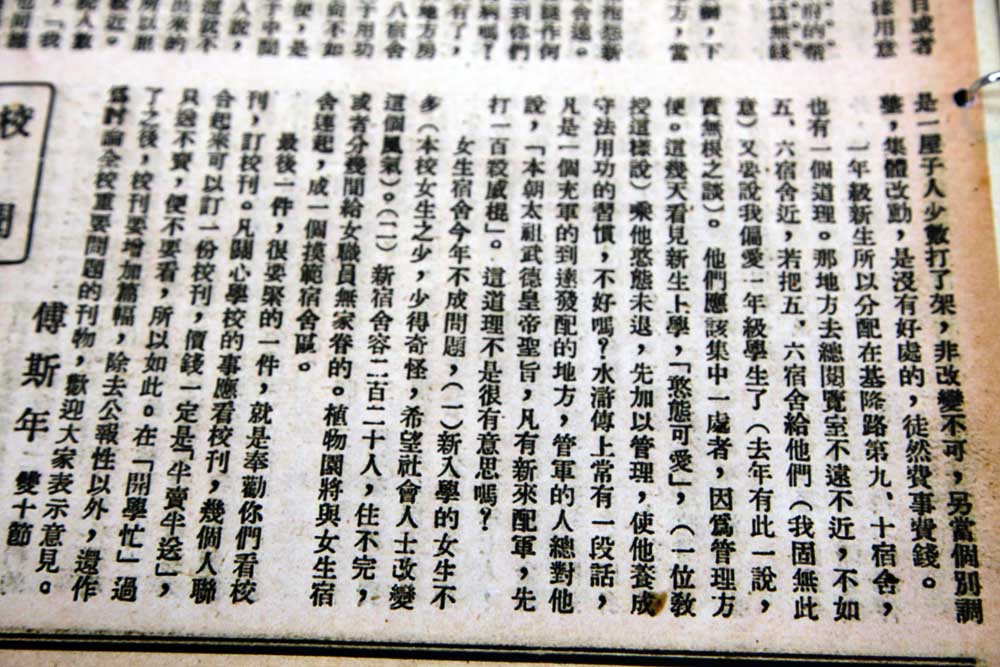 樣用意
爲無錢
方，當
是一屋子人少數打了架，非改變不可，另當個別調
整，集體改動，是沒有好處的，徒然費事費錢。
一年級新生所以分配在基隆路第九、十宿舍，
也有一個道理。那地方去總閱覽室不遠不近，不如
五、六宿舍近，若把五、六宿舍給他們（我固無此
意）又要說我偏愛一年級學生了（去年有此一說，
實無根之談）。他們應該集中一處者，因爲管理方
便。這幾天看見新生上學，「憨態可愛」，（一位敎
授這樣說）乘他憨態未退，先加以管理，使他養成
守法用功的習慣，不好嗎？水滸傳上常有一段話，
凡是一個充軍的到達發配的地方，管軍的人總對他
說，「本朝太祖武德皇帝聖旨，凡有新來配軍，先
打一百殺威棍」。這道理不是很有意思嗎？
女生宿舍今年不成問題，（一）新入學的女生不
多（本校女生之少，少得奇怪，希望社會人士改變
這個風氣）。（二）新宿舍容二百二十人，住不完，
或者分幾間給女職員無家眷的。植物園將與女生宿
舍連起，成一個摸範宿舍區。
最後一件，很要緊的一件，就是奉勸你們看校
刊，訂校刊。凡關心學校的事應看校刊，幾個人聯
合起來可以訂一份校刊，價錢一定是「半賣半送」，
只送不賣，便不要看，所以如此。在「開學忙」過
了之後，校刊要增加篇幅，除去公報性以外，還作
爲討論全校重要問題的刊物，歡迎大家表示意見。
傅斯年 雙十節
校